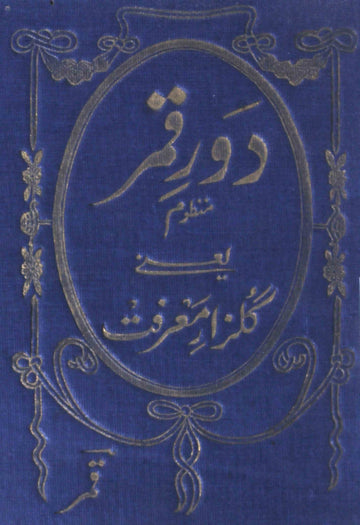 دَورِ قمر
منظوم
یعنی
گلزارِ معرفت
قمر